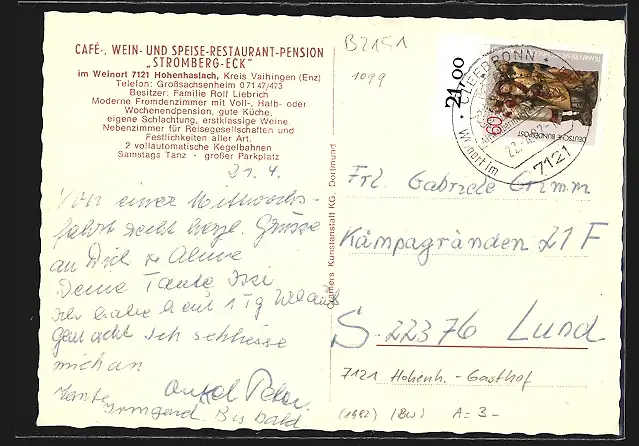 CAFÉ-, WEIN- UND SPEISE-RESTAURANT-PENSION
„STROMBERG-ECK"
im Weinort 7121 Hohenhaslach, Kreis Vaihingen (Enz)
Telefon: Großsachsenheim 0 71 47/473
Besitzer: Familie Rolf Liebrich
Moderne Fremdenzimmer mit Voll-, Halb- oder
Wochenendpension, gute Küche,
eigene Schlachtung, erstklassige Weine
Nebenzimmer für Reisegesellschaften und
Festlichkeiten aller Art.
2 vollautomatische Kegelbahnen
Samstags Tanz - großer Parkplatz
21. 4.
Von einer Mittwochs-
fahrt recht herzl. Grüsse
an Dich
Deine Tante
Ich habe heut 1 Tg Urlaub
gemacht Ich schliesse
mich an
Onkel Peter
Tante
Irmgard. Bis bald
Cramers Kunstanstalt KG, Dortmund
B2151
1099
21,00
CLEEBRONN
Weinort im
7121
60
DEUTSCHE BUNDESPOST
Frl. Gabriele Grimm
Kämpagränden 21 F
S-22376 Lund
7121 Hohenh. - Gasthof
(1982) (BW) A= 3-